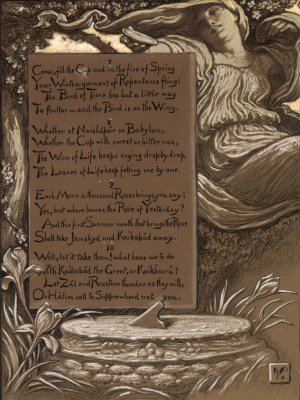 7
Come, fill the Cup and in the fire of Spring
Your Winter-garment of Repentance fling:
The Bird of Time has but a little way
To flutter — and the Bird is on the Wing.
8
Whether at Naishápúr or Babylon,
Whether the Cup with sweet or bitter run,
The Wine of Life keeps oozing drop by drop,
The Leaves of Life keep falling one by one.
9
Each Morn a thousand Roses brings, you say;
Yes, but where leaves the Rose of Yesterday?
And this first Summer month that brings the Rose
Shall take Jamshyd and Kaikobád away.
10
Well, let it take them! what have we to do
With Kaikobád the Great, or Kaikhosrú?
Let Zál and Rustum thunder as they will,
Or Hátim call to Supper — heed not you.
V